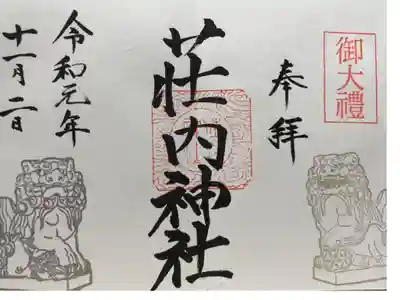 御大禮
奉拝
荘内神社
令和元年
十一月二日